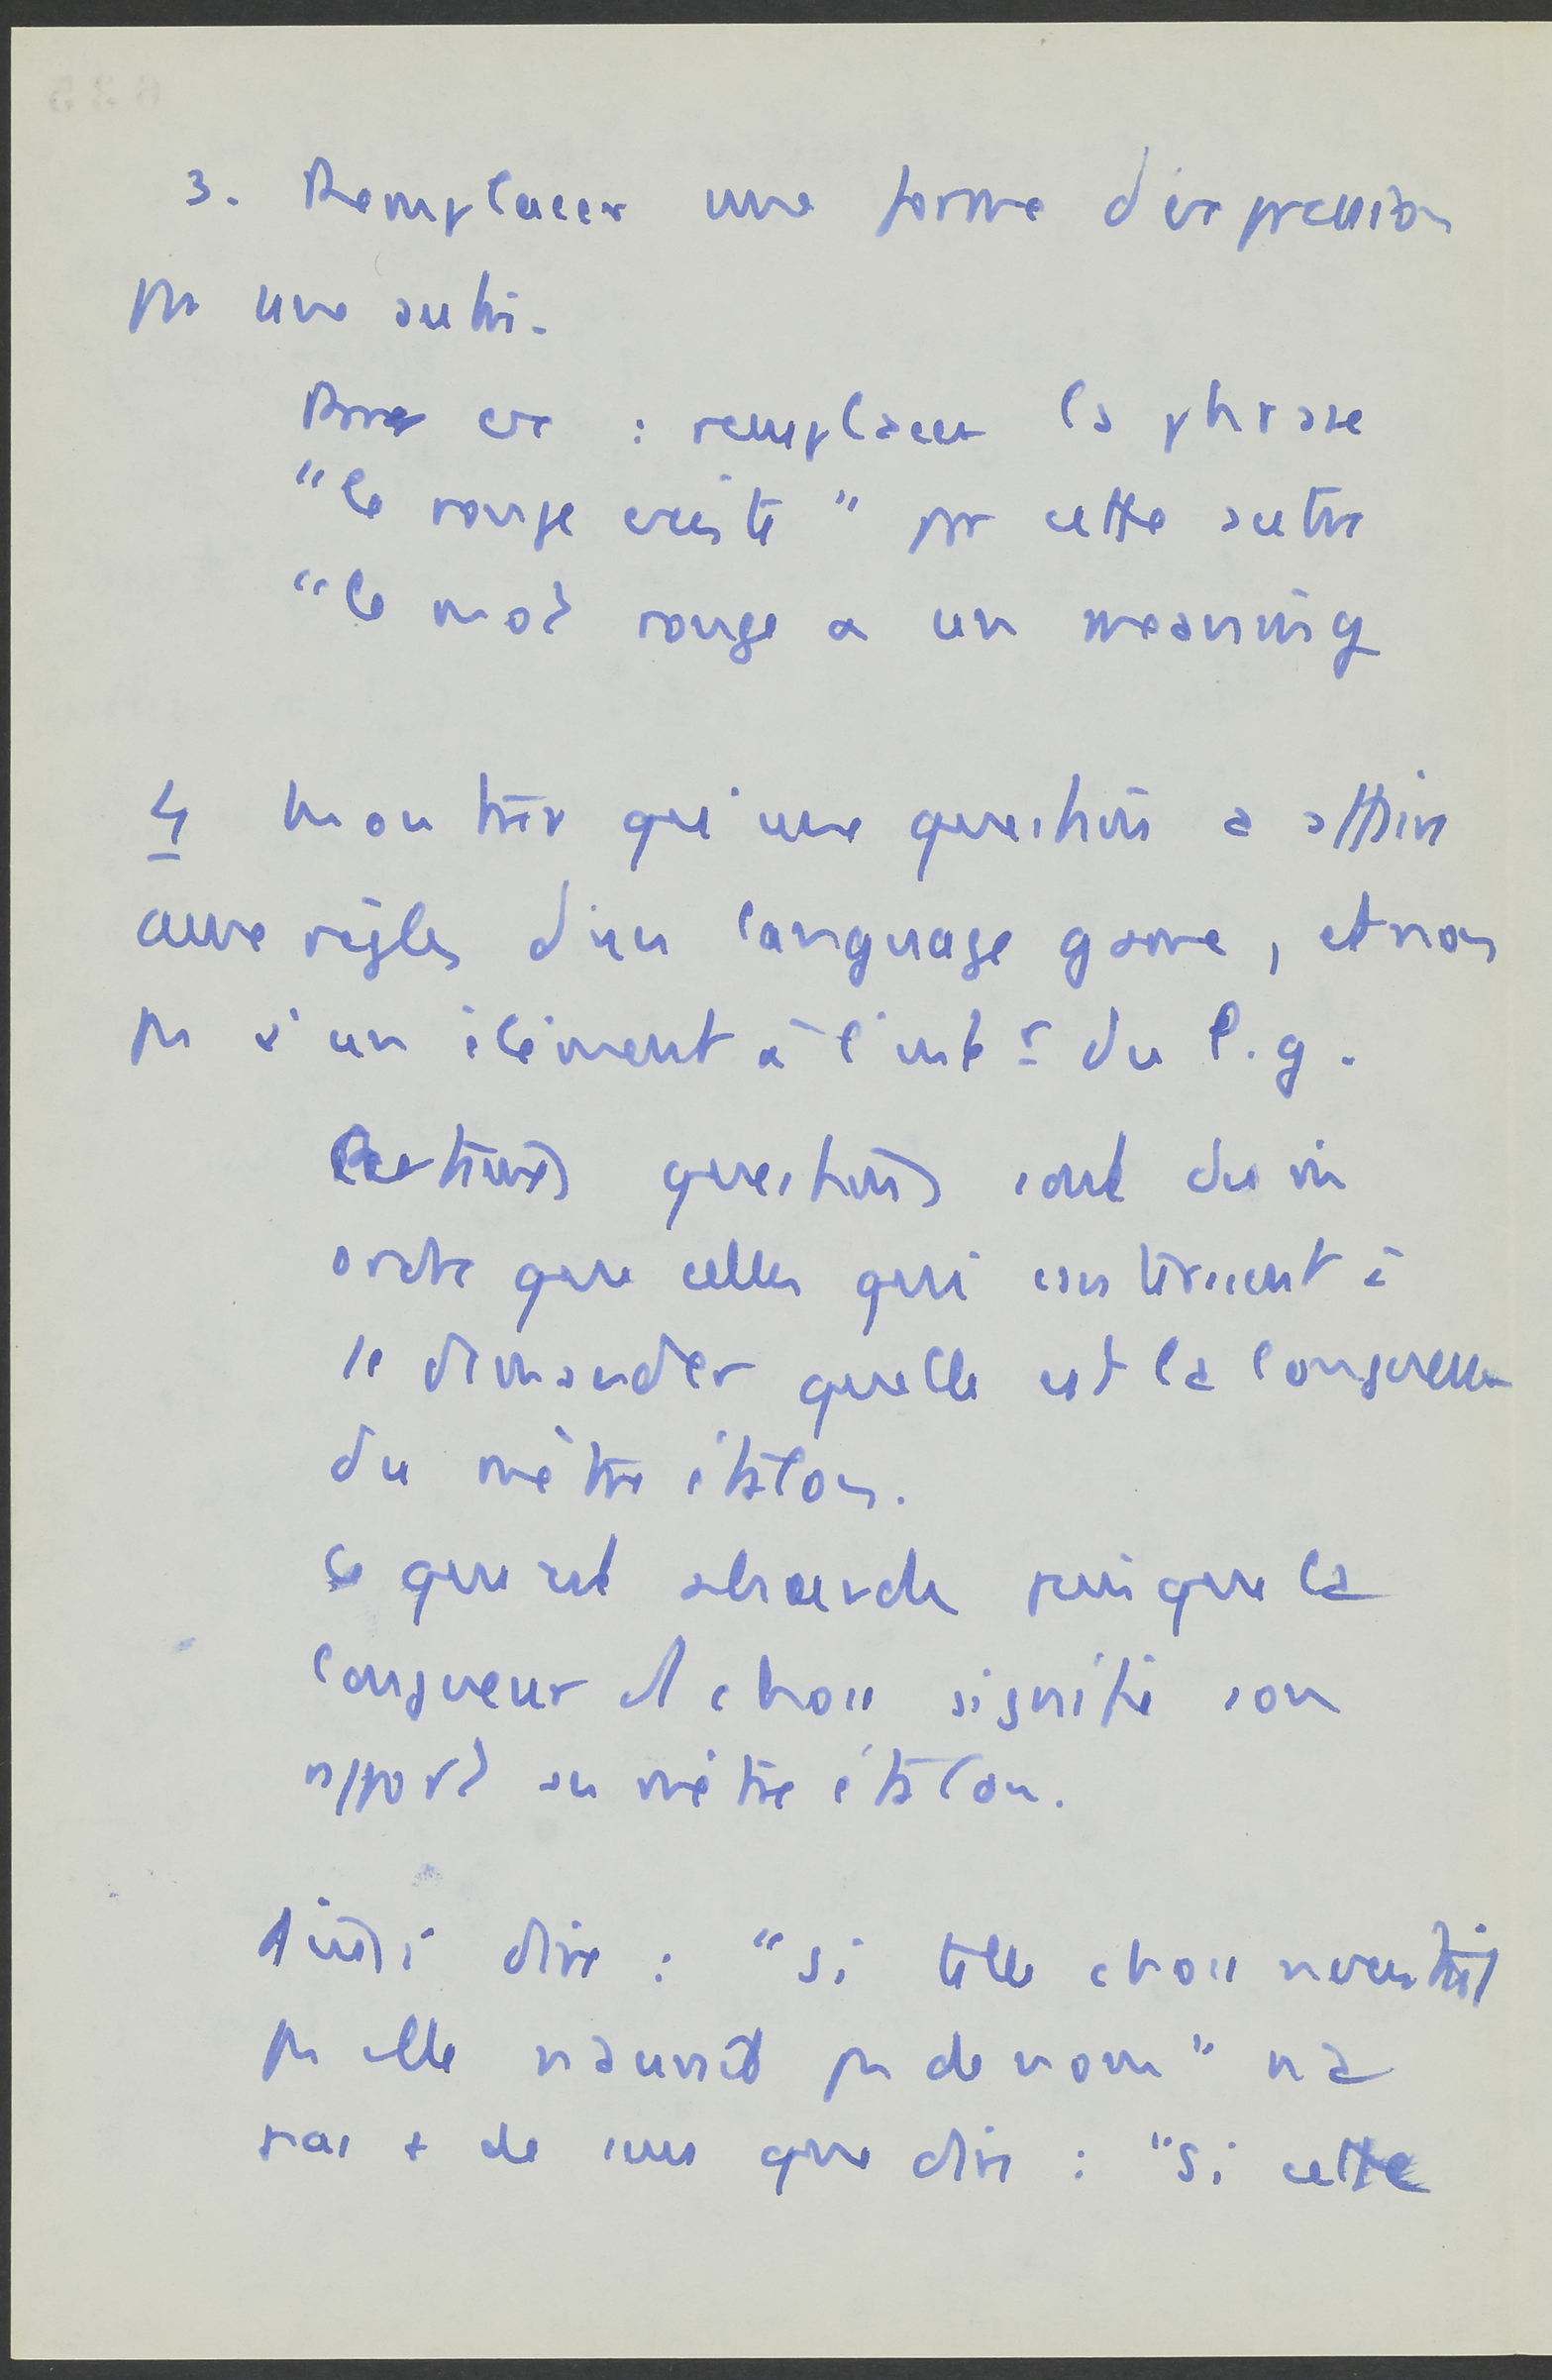 3. Remplacer une forme d'expression
par une autre.
Par ex : remplacer la phrase
"le rouge existe" par cette autre
"le mot rouge a un meaning
4 Montrer qu'une question a affaire
aux règles d'un language game, et non
pas à un élément à l'intr du l.g.
Certaines questions sont du m
ordre que celles qui consisteraient à
se demander quelle est la longueur
du mètre étalon.
Ce qui est absurde puisque la
longueur d'1 chose signifie son
rapport au mètre étalon.
Ainsi dire : "si telle chose n'existait
pas elle n'aurait pas de nom" n'a
pas + de sens que dire : "Si cette